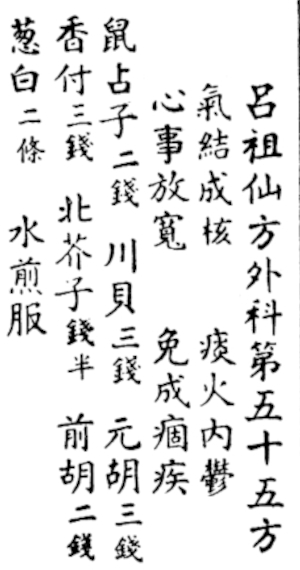 呂祖仙方外科第五十五方
氣結成核　痰火內鬱
心事放寬　免成痼疾
鼠占子二錢　川貝三錢　元胡三錢
香付三錢　北芥子錢半　前胡二錢
葱白二條　水煎服